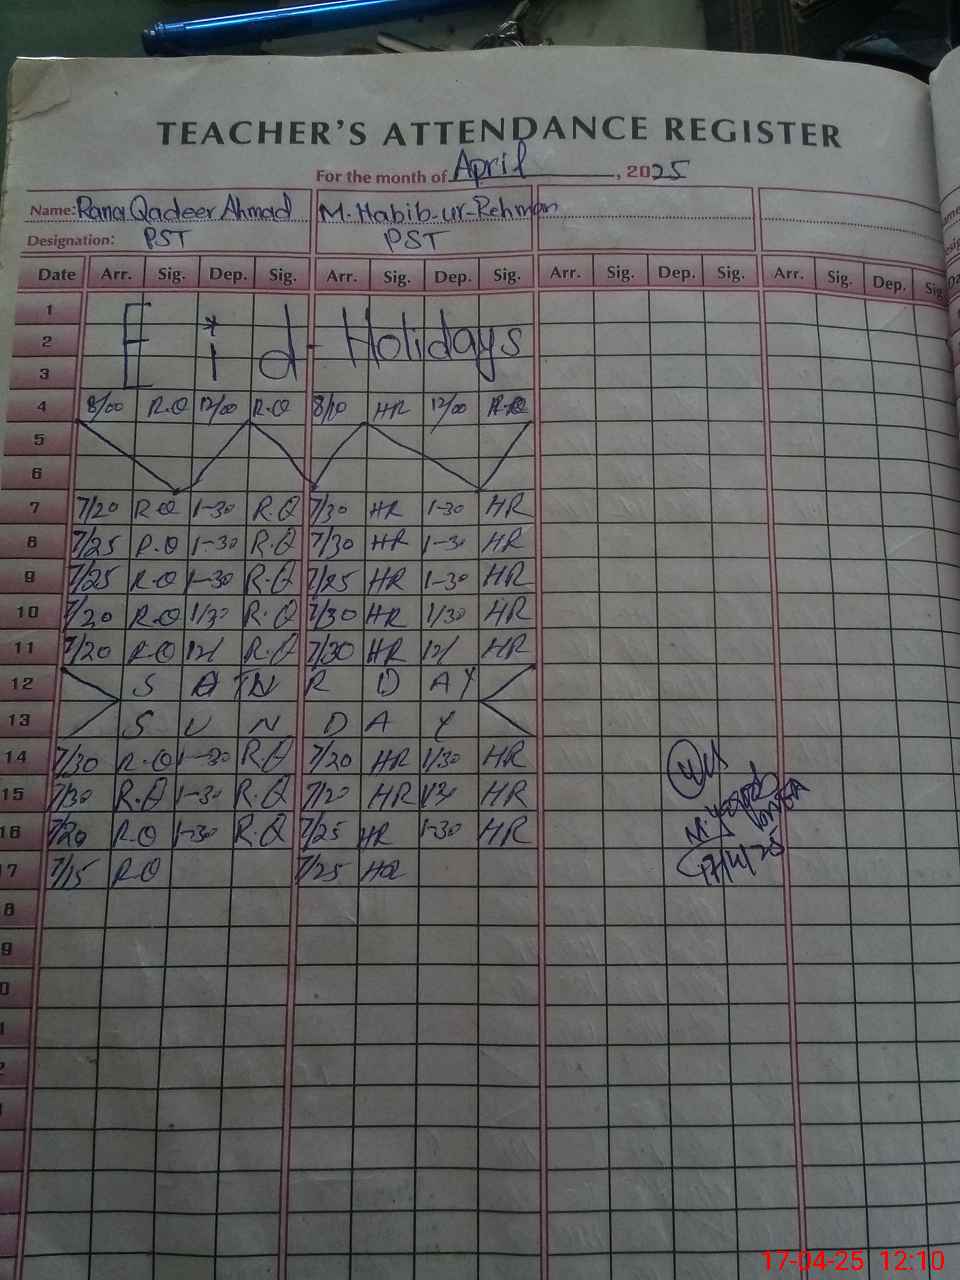 TEACHER'S ATTENDANCE REGISTER
For the month of April, 2025
Name: Rana Qadeer Ahmad M. Habib-ur-Rehman
Designation: PST PST
Date Arr. Sig. Dep. Sig. Arr. Sig. Dep. Sig. Arr. Sig. Dep. Sig. Arr. Sig. Dep. Sig
1
2 Eid-Holidays
3
4 8/00 R.Q 12/00 R.Q 8/10 HR 12/00
5
6
7 7/20 R.Q 1-30 R.Q 7/30 HR 1-30 HR
8 7/25 R.Q 1-30 R.Q 7/30 HR 1-30 HR
9 7/25 R.Q 1-30 R.Q 7/25 HR 1-30 HR
10 7/20 R.Q 1/30 R.Q 7/30 HR 1/30 HR
11 7/20 R.Q 12/ R.Q 7/30 HR 12/ HR
12 SATURDAY
13 SUNDAY
14 7/30 R.Q 1-30 R.Q 7/20 HR 1/30 HR
15 7/30 R.Q 1-30 R.Q 7/20 HR 1/30 HR
16 7/20 R.Q 1-30 R.Q 7/25 HR 1-30 HR
7 7/15 R.Q 7/25 HR
17/4/25
8
9
0
1
2
17-04-25 12:10